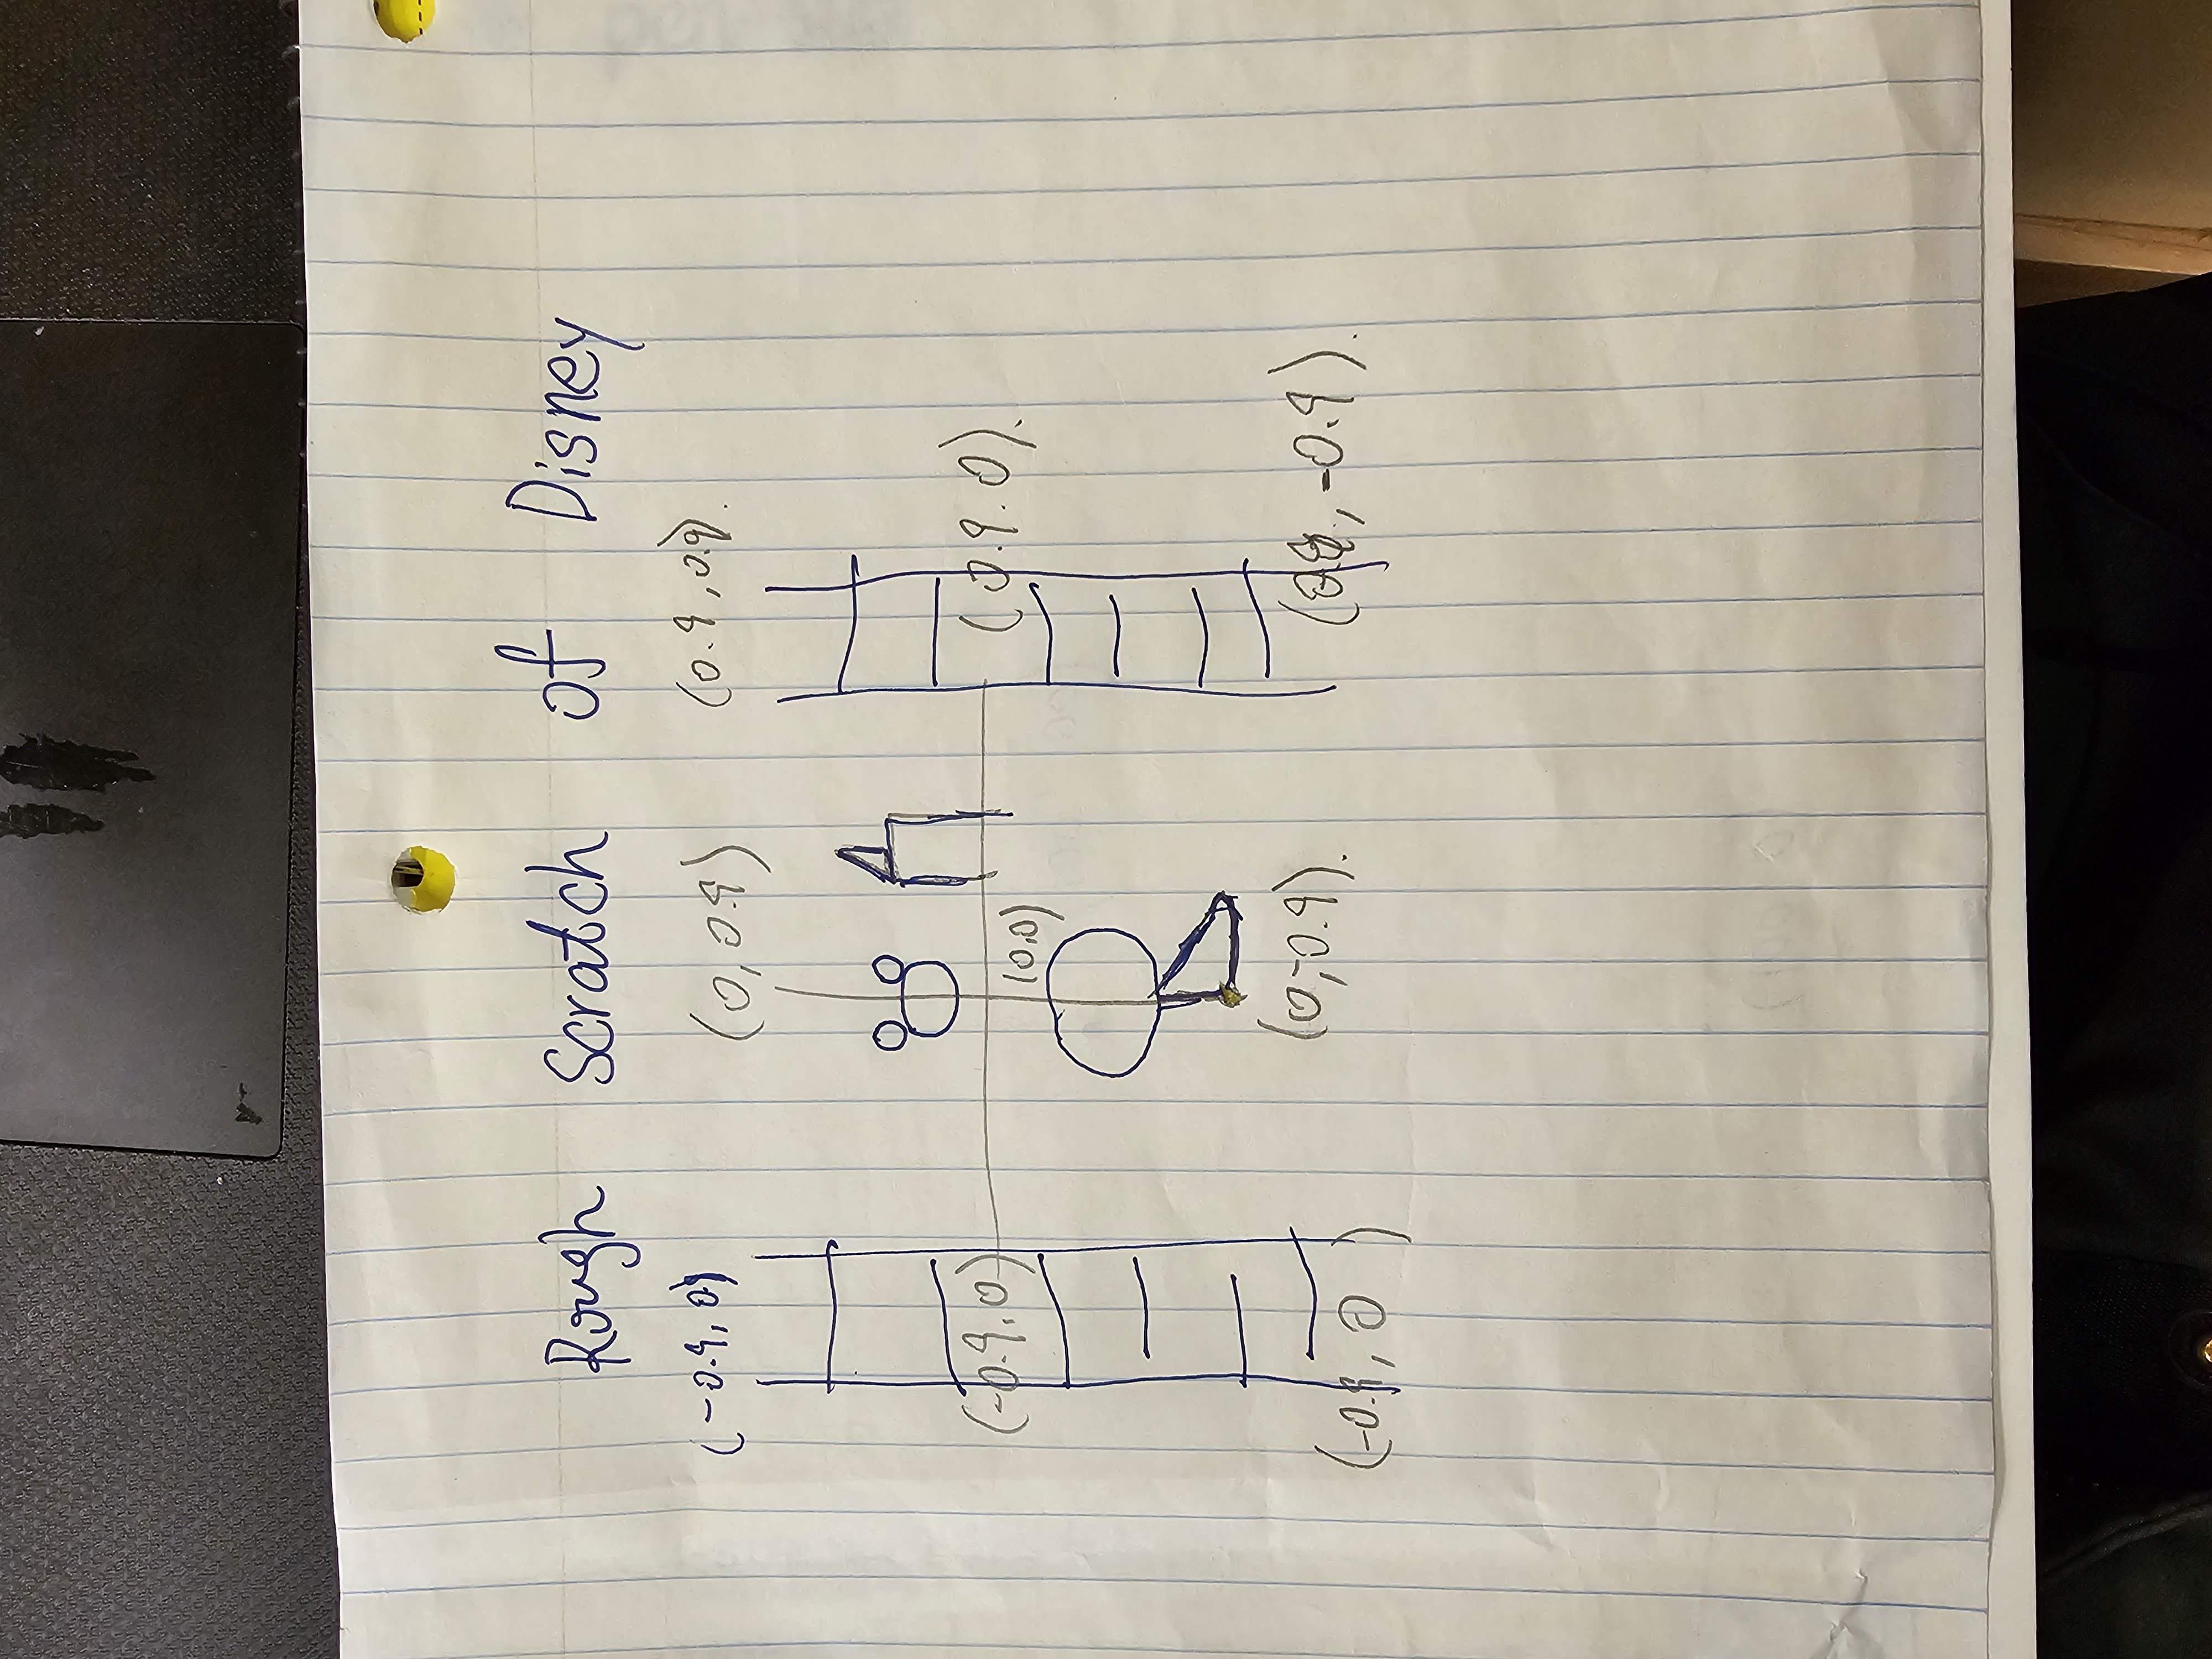 Rough Scratch of Disney
(-0.9, 0) (0, 0.9) (0.9, 0.9).
(-0.9, 0) (0.9. 0).
(0,0)
(0, -0.9).
(-0.9, 0 ) , -0.9).